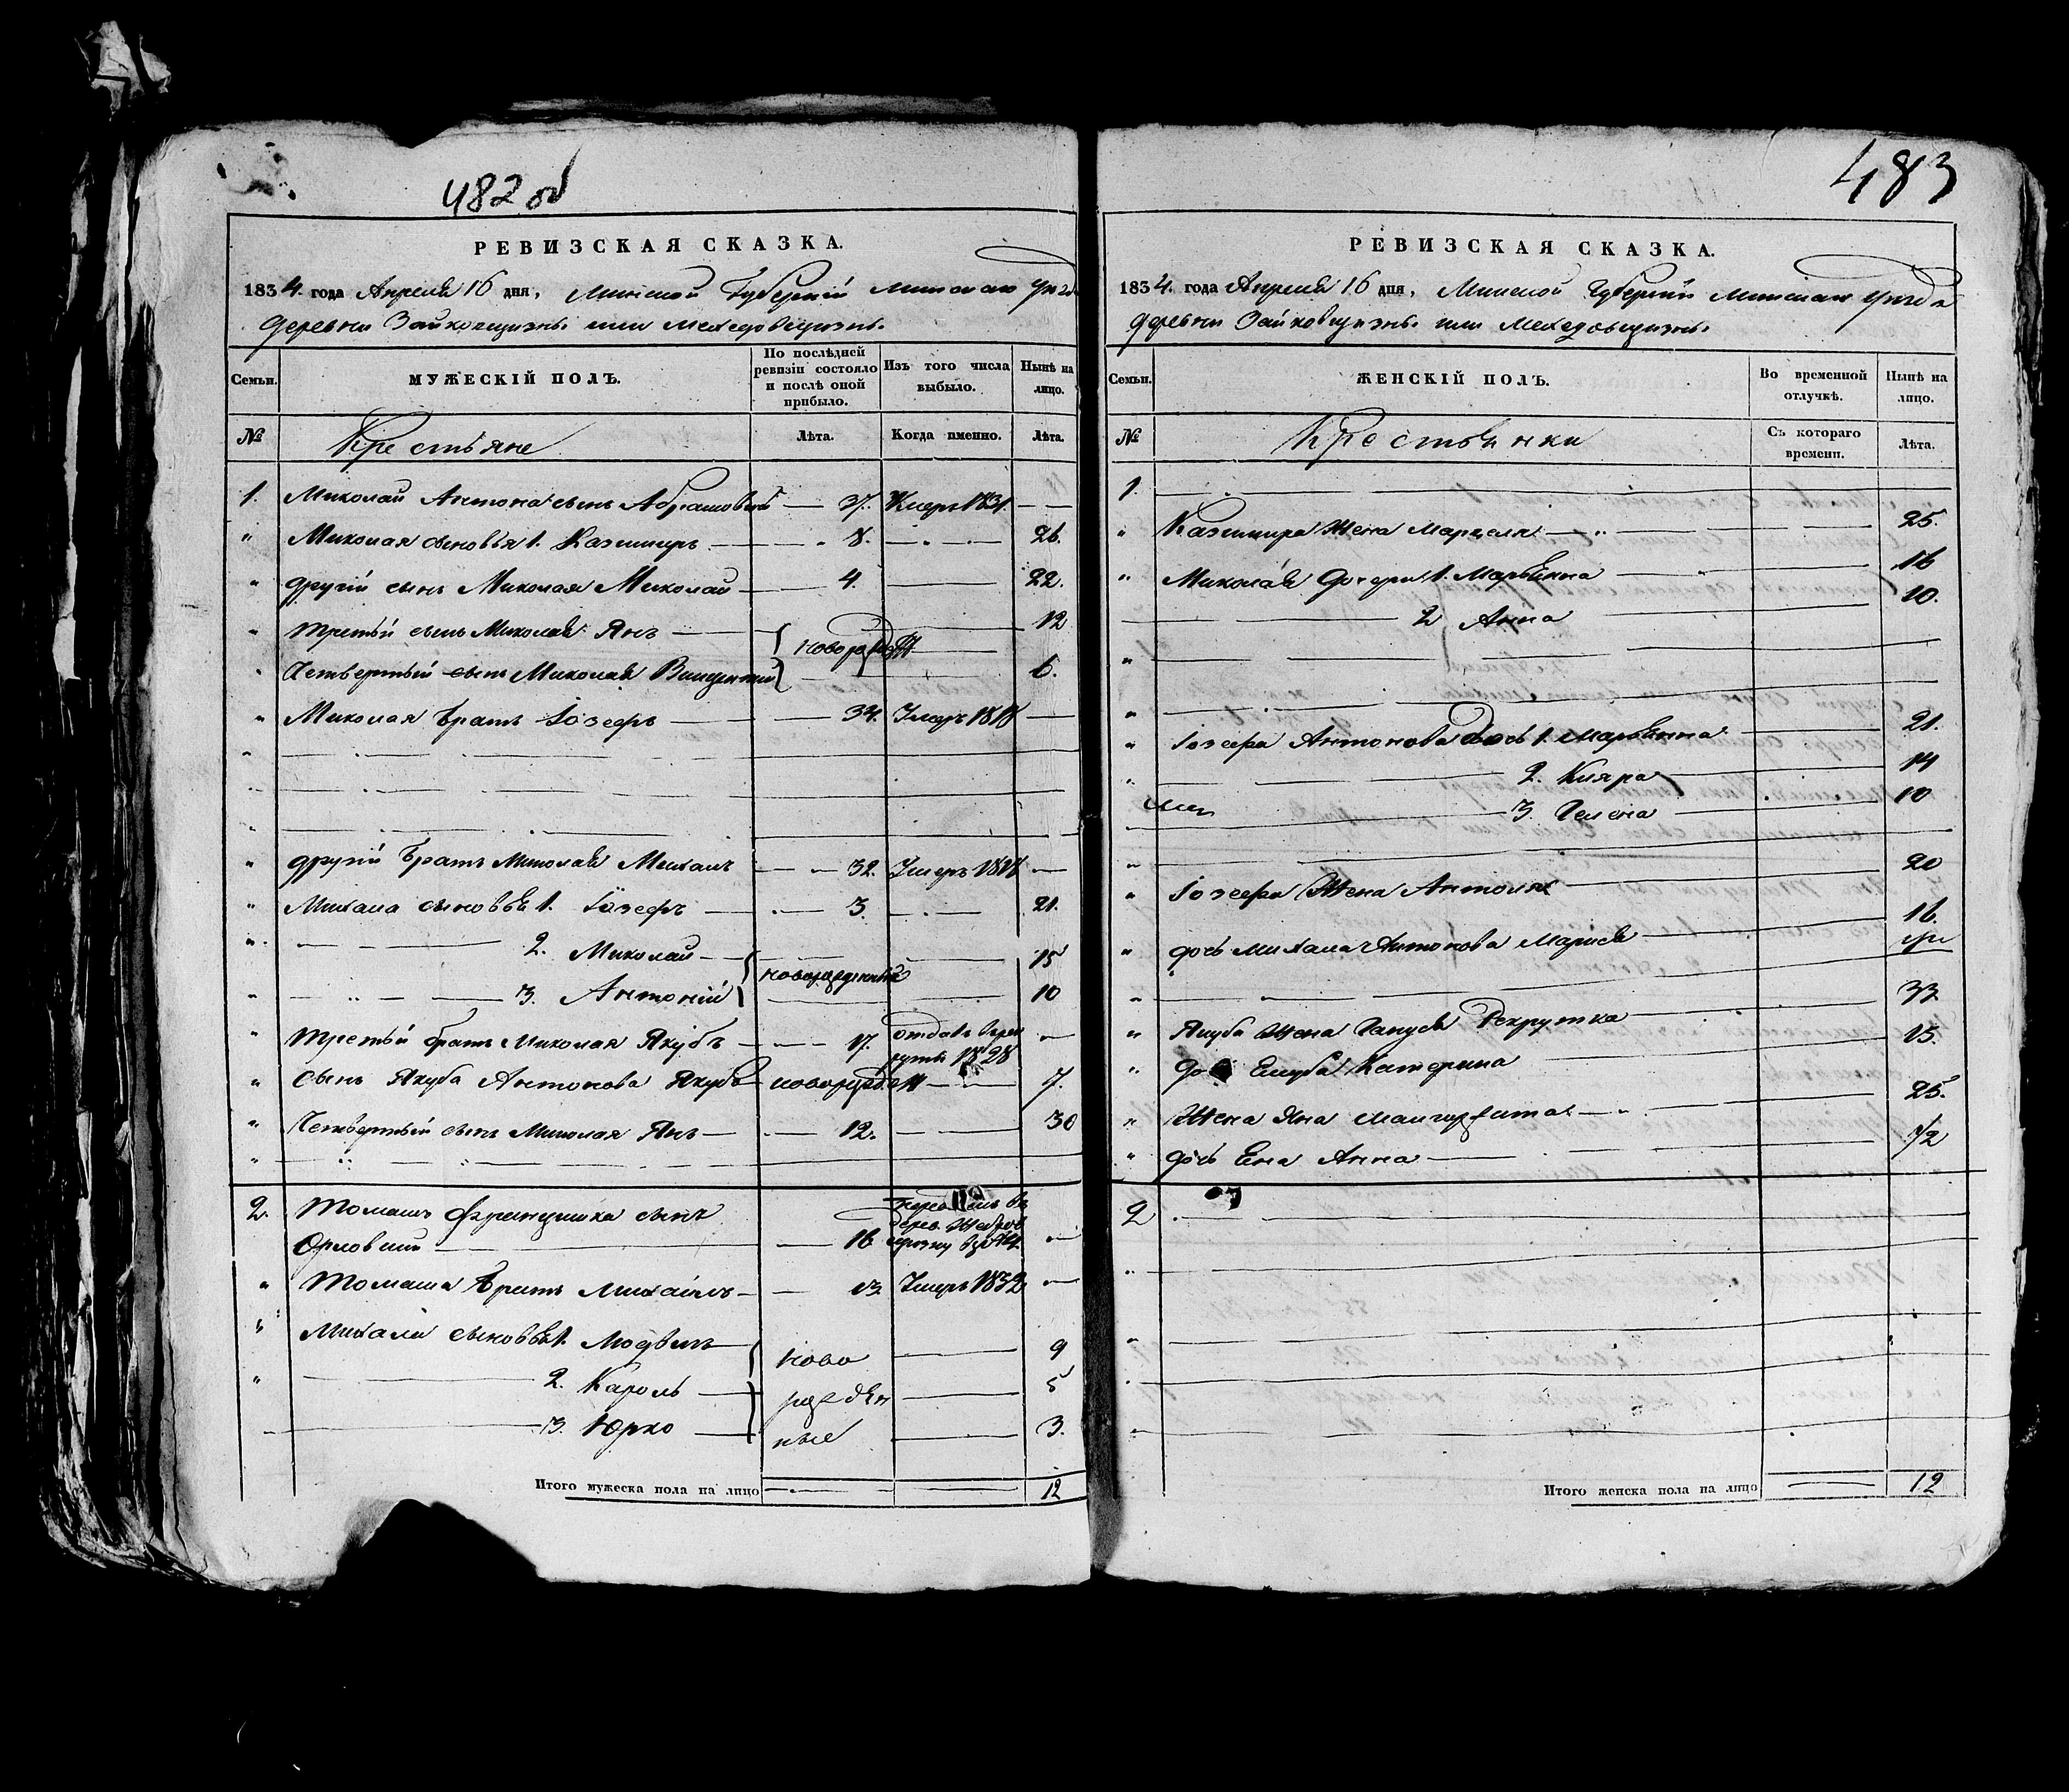 482 об
РЕВИЗСКАЯ СКАЗКА.
1834. года Апреля 16 дня, Минской Губерніи Минскаго уезда
деревни Зайковщизны или Мехедовщизны.
Семьи.
МУЖЕСКІЙ ПОЛЪ.
По послѣдней ревизіи состояло и послѣ оной прибыло.
Изъ того числа выбыло.
Нынѣ на лицо.
№ Крестьяне Лѣта. Когда именно. Лѣта.
1. Миколай Антона сынъ Абрамовскій — 37. Умеръ 1831 —
" Миколая сыновья 1. Казимиръ — 8. — 26.
" другій сынъ Миколая Миколай — 4. — 22.
" третьй сынъ Миколая Янъ — новорожден — 12
" Четвертый сынъ Миколая Винцентій — 6.
" Миколая братъ Іозефъ — 34. Умеръ 1818 —
" другій братъ Миколая Михалъ — 32. Умеръ 1818 —
" Михала сыновья 1. Іозефъ — 3. — 21.
" — 2. Миколай — новорожденный — 15
" — 3. Антоній — 10
" третьй братъ Миколая Якубъ — 17. отданъ в рекруты 1828 —
" Сынъ Якуба Антонова Якубъ — новорожден — 7.
" Четвертый сынъ Миколая Янъ — 12. — 30
2. Томашъ Францишка сынъ
Орловскій — 16 —
" Томаша братъ Михаилъ — 13 Умеръ 1832 —
" Михала сыновья 1. Людвикъ — ново — 9
" — 2. Кароль — рожден — 5
— 3. Юрко — ные — 3.
Итого мужеска пола на лицо — 12
483
РЕВИЗСКАЯ СКАЗКА.
1834. года Апреля 16 дня, Минской Губерніи Минскаго уезда
деревни Зайковщизны или Мехедовщизны.
Семьи.
ЖЕНСКІЙ ПОЛЪ.
Во временной отлучкѣ.
Нынѣ на лицо.
№ Крестьянки Съ котораго времени. Лѣта.
1. —
" Казимира Жена Марцеля — 25.
" Миколая дочери 1. Марьянна — 16
— 2 Анна — 10.
" Іозефа Антонова дочь 1. Марьянна — 21.
" — 2. Кляра — 14
— 3. Гелена — 10
" Іозефа Жена Антоля — 20
" дочь Михала Антонова Марися — 16.
" Якуба Жена Гапуся Рекрутка — 33
" Якуба Катерина — 15.
" Жена Яна Маигоржата — 25.
" дочь Ена Анна — 1/2
2 —
Итого женска пола на лицо — 12